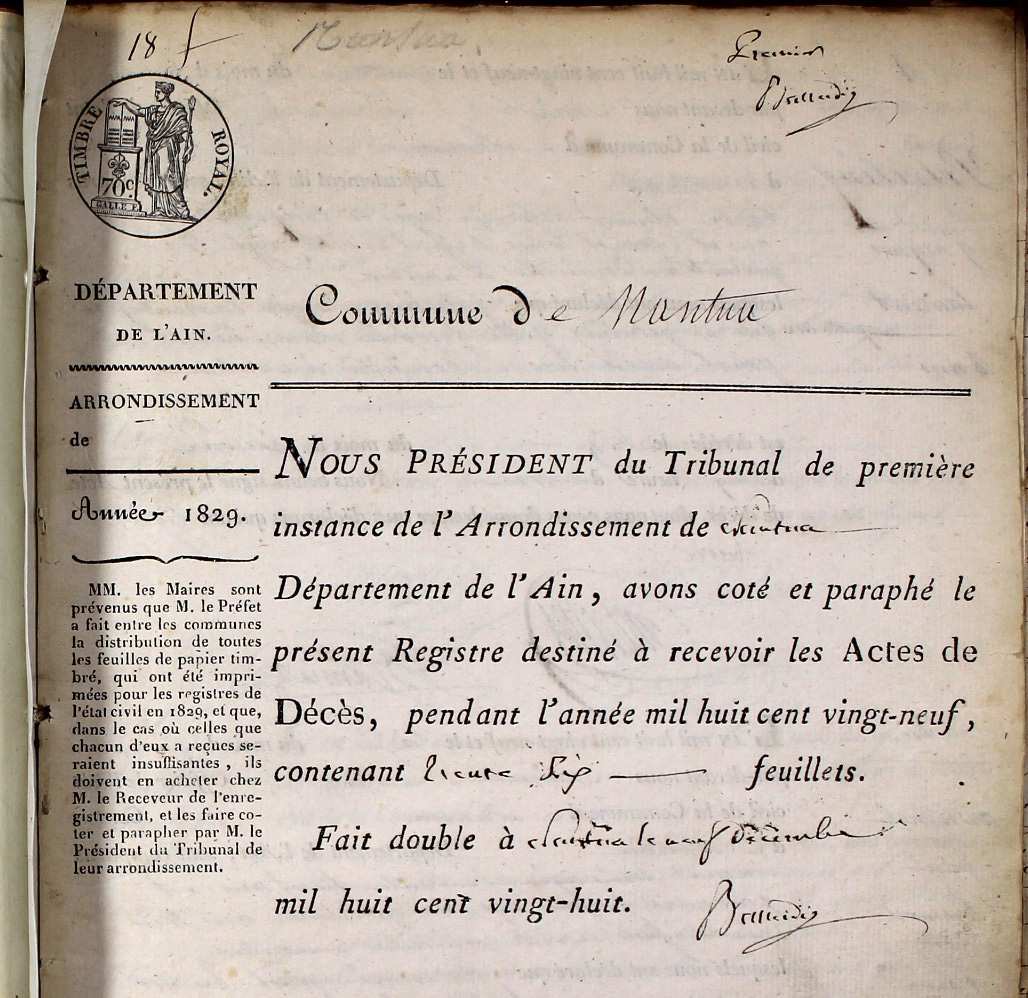 18 f
Nantua
Premier
TIMBRE ROYAL.
70 c.
DÉPARTEMENT
DE L'AIN.
ARRONDISSEMENT
de
Année 1829.
MM. les Maires sont
prévenus que M. le Préfet
a fait entre les communes
la distribution de toutes
les feuilles de papier tim-
bré, qui ont été impri-
mées pour les registres de
l'état civil en 1829, et que,
dans le cas où celles que
chacun d'eux a reçues se-
raient insuffisantes, ils
doivent en acheter chez
M. le Receveur de l'enre-
gistrement, et les faire co-
ter et parapher par M. le
Président du Tribunal de
leur arrondissement.
Commune De Nantua
NOUS PRÉSIDENT du Tribunal de première
instance de l'Arrondissement de Nantua
Département de l'Ain, avons coté et paraphé le
présent Registre destiné à recevoir les Actes de
Décès, pendant l'année mil huit cent vingt-neuf,
contenant trente six feuillets.
Fait double à Nantua le neuf Décembre
mil huit cent vingt-huit.